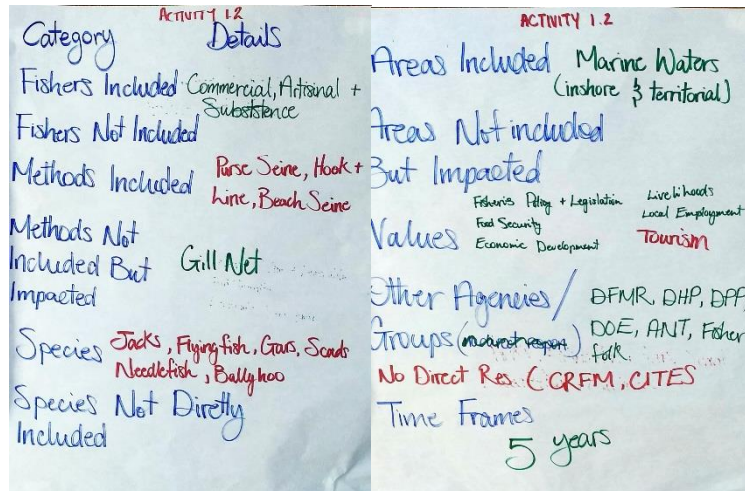 ACTIVITY 1.2
Category Details
Fishers Included Commercial, Artisinal +
Subsistence
Fishers Not Included
Methods Included Purse Seine, Hook +
Line, Beach Seine
Methods Not
Included But Gill Net
Impacted
Species Jacks, Flyingfish, Gars, Scads
Needlefish, Ballyhoo
Species Not Diretly
Included
ACTIVITY 1.2
Areas Included Marine Waters
(inshore & territorial)
Areas Not included
But Impacted
Fisheries Policy + Legislation Livelihoods
Food Security Local Employment
Values Economic Development Tourism
Other Agencies/ DFMR, DHP, DPP
Groups DOE, ANT, Fisher
folk
No Direct Res. (CRFM, CITES
Time Frames
5 years